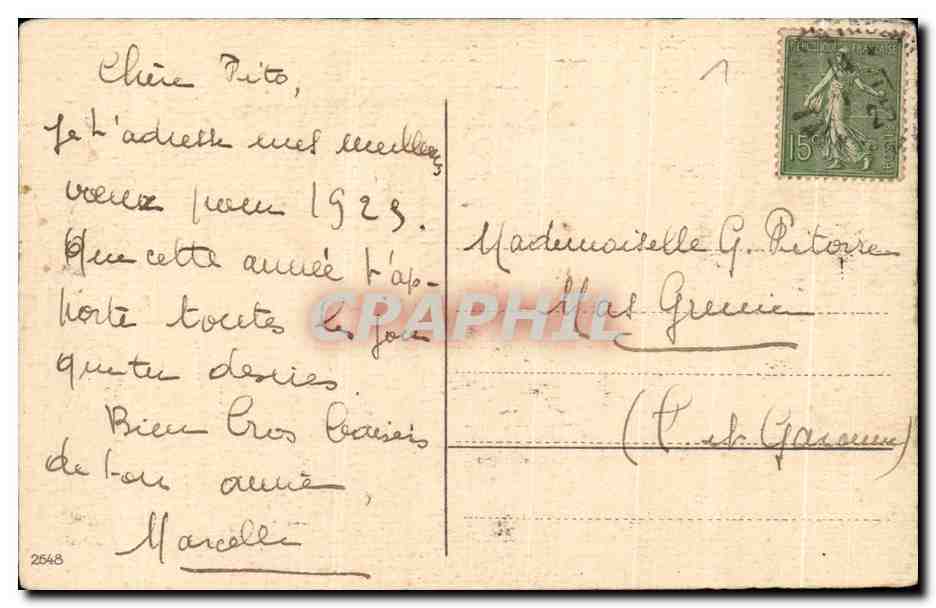 Chère Pito,
je t'adresse mes meilleurs
vœux pour 1923.
Que cette année t'ap-
porte toutes les joies
que tu desires
Bien Gros baisers
de ton amie,
Marcelle
2548
1
REPUBLIQUE FRANÇAISE
15c
POSTES
Mademoiselle G. Pitorre
Mas Grenier
(T et Garonne)
CPAPHIL